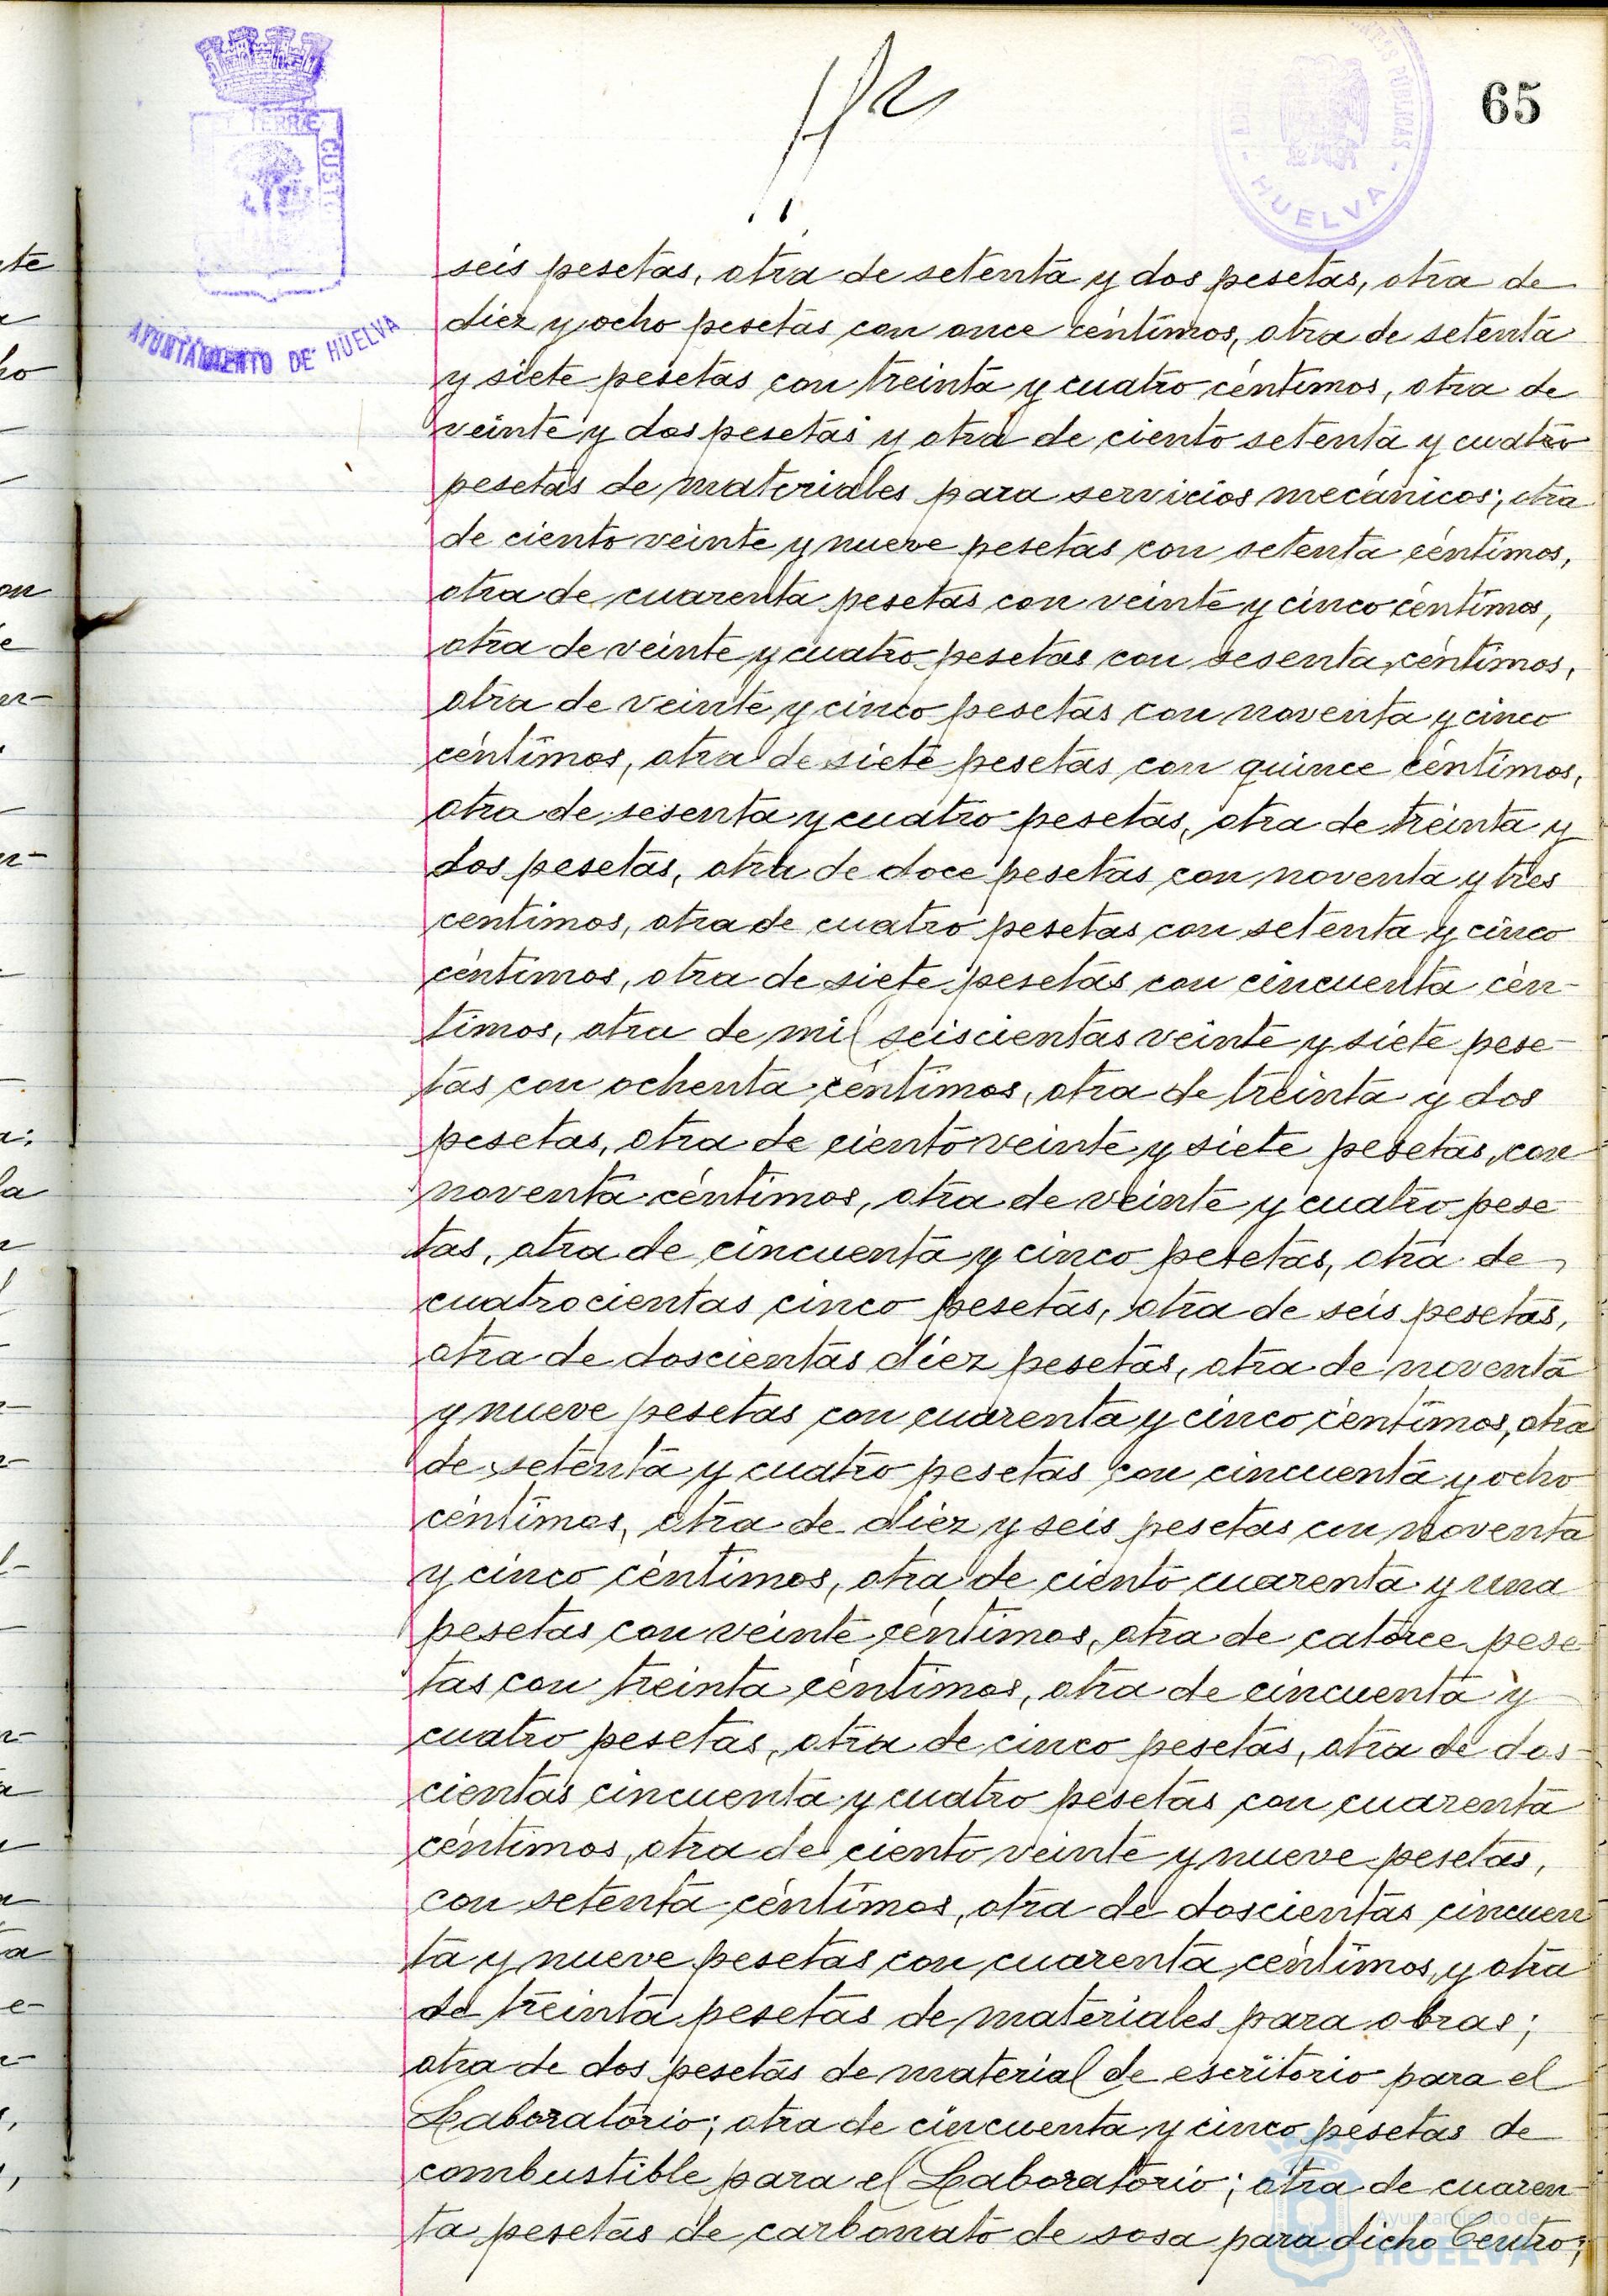 65
TERRE
CUSTO
AYUNTAMIENTO DE HUELVA
- HUELVA -
seis pesetas, otra de setenta y dos pesetas, otra de
diez y ocho pesetas con once céntimos, otra de setenta
y siete pesetas con treinta y cuatro céntimos, otra de
veinte y dos pesetas y otra de ciento setenta y cuatro
pesetas de materiales para servicios mecánicos; otra
de ciento veinte y nueve pesetas con setenta céntimos,
otra de cuarenta pesetas con veinte y cinco céntimos,
otra de veinte y cuatro pesetas con sesenta céntimos,
otra de veinte y cinco pesetas con noventa y cinco
céntimos, otra de siete pesetas con quince céntimos,
otra de sesenta y cuatro pesetas, otra de treinta y
dos pesetas, otra de doce pesetas con noventa y tres
centimos, otra de cuatro pesetas con setenta y cinco
céntimos, otra de siete pesetas con cincuenta cén-
timos, otra de mil seiscientas veinte y siete pese-
tas con ochenta céntimos, otra de treinta y dos
pesetas, otra de ciento veinte y siete pesetas, con
noventa céntimos, otra de veinte y cuatro pese-
tas, otra de cincuenta y cinco pesetas, otra de
cuatrocientas cinco pesetas, otra de seis pesetas,
otra de doscientas diez pesetas, otra de noventa
y nueve pesetas con cuarenta y cinco céntimos, otra
de setenta y cuatro pesetas con cincuenta y ocho
céntimos, otra de diez y seis pesetas con noventa
y cinco céntimos, otra de ciento cuarenta y una
pesetas con veinte céntimos, otra de catorce pese-
tas con treinta céntimos, otra de cincuenta y
cuatro pesetas, otra de cinco pesetas, otra de dos-
cientas cincuenta y cuatro pesetas con cuarenta
céntimos, otra de ciento veinte y nueve pesetas,
con setenta céntimos, otra de doscientas cincuen
ta y nueve pesetas con cuarenta céntimos, y otra
de treinta pesetas de materiales para obras;
otra de dos pesetas de material de escritorio para el
Laboratorio; otra de cincuenta y cinco pesetas de
combustible para el Laboratorio; otra de cuaren-
ta pesetas de carbonato de sosa para dicho Centro;
Ayuntamiento de
HUELVA